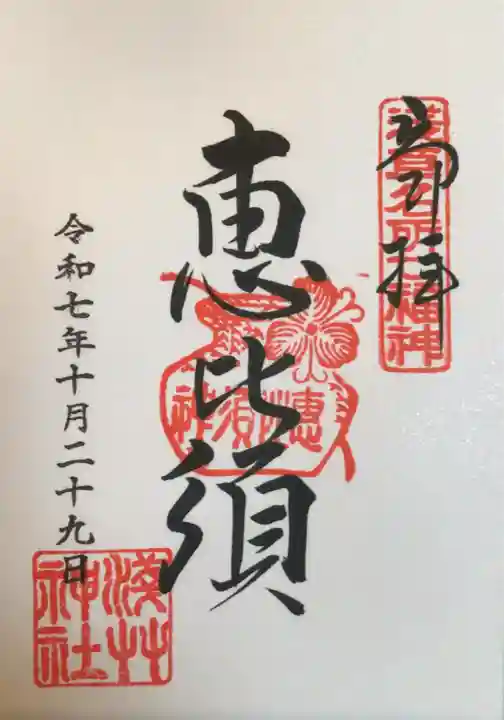 奉拝
浅草名所七福神
恵比須
惠比須神
令和七年十月二十九日
浅草神社